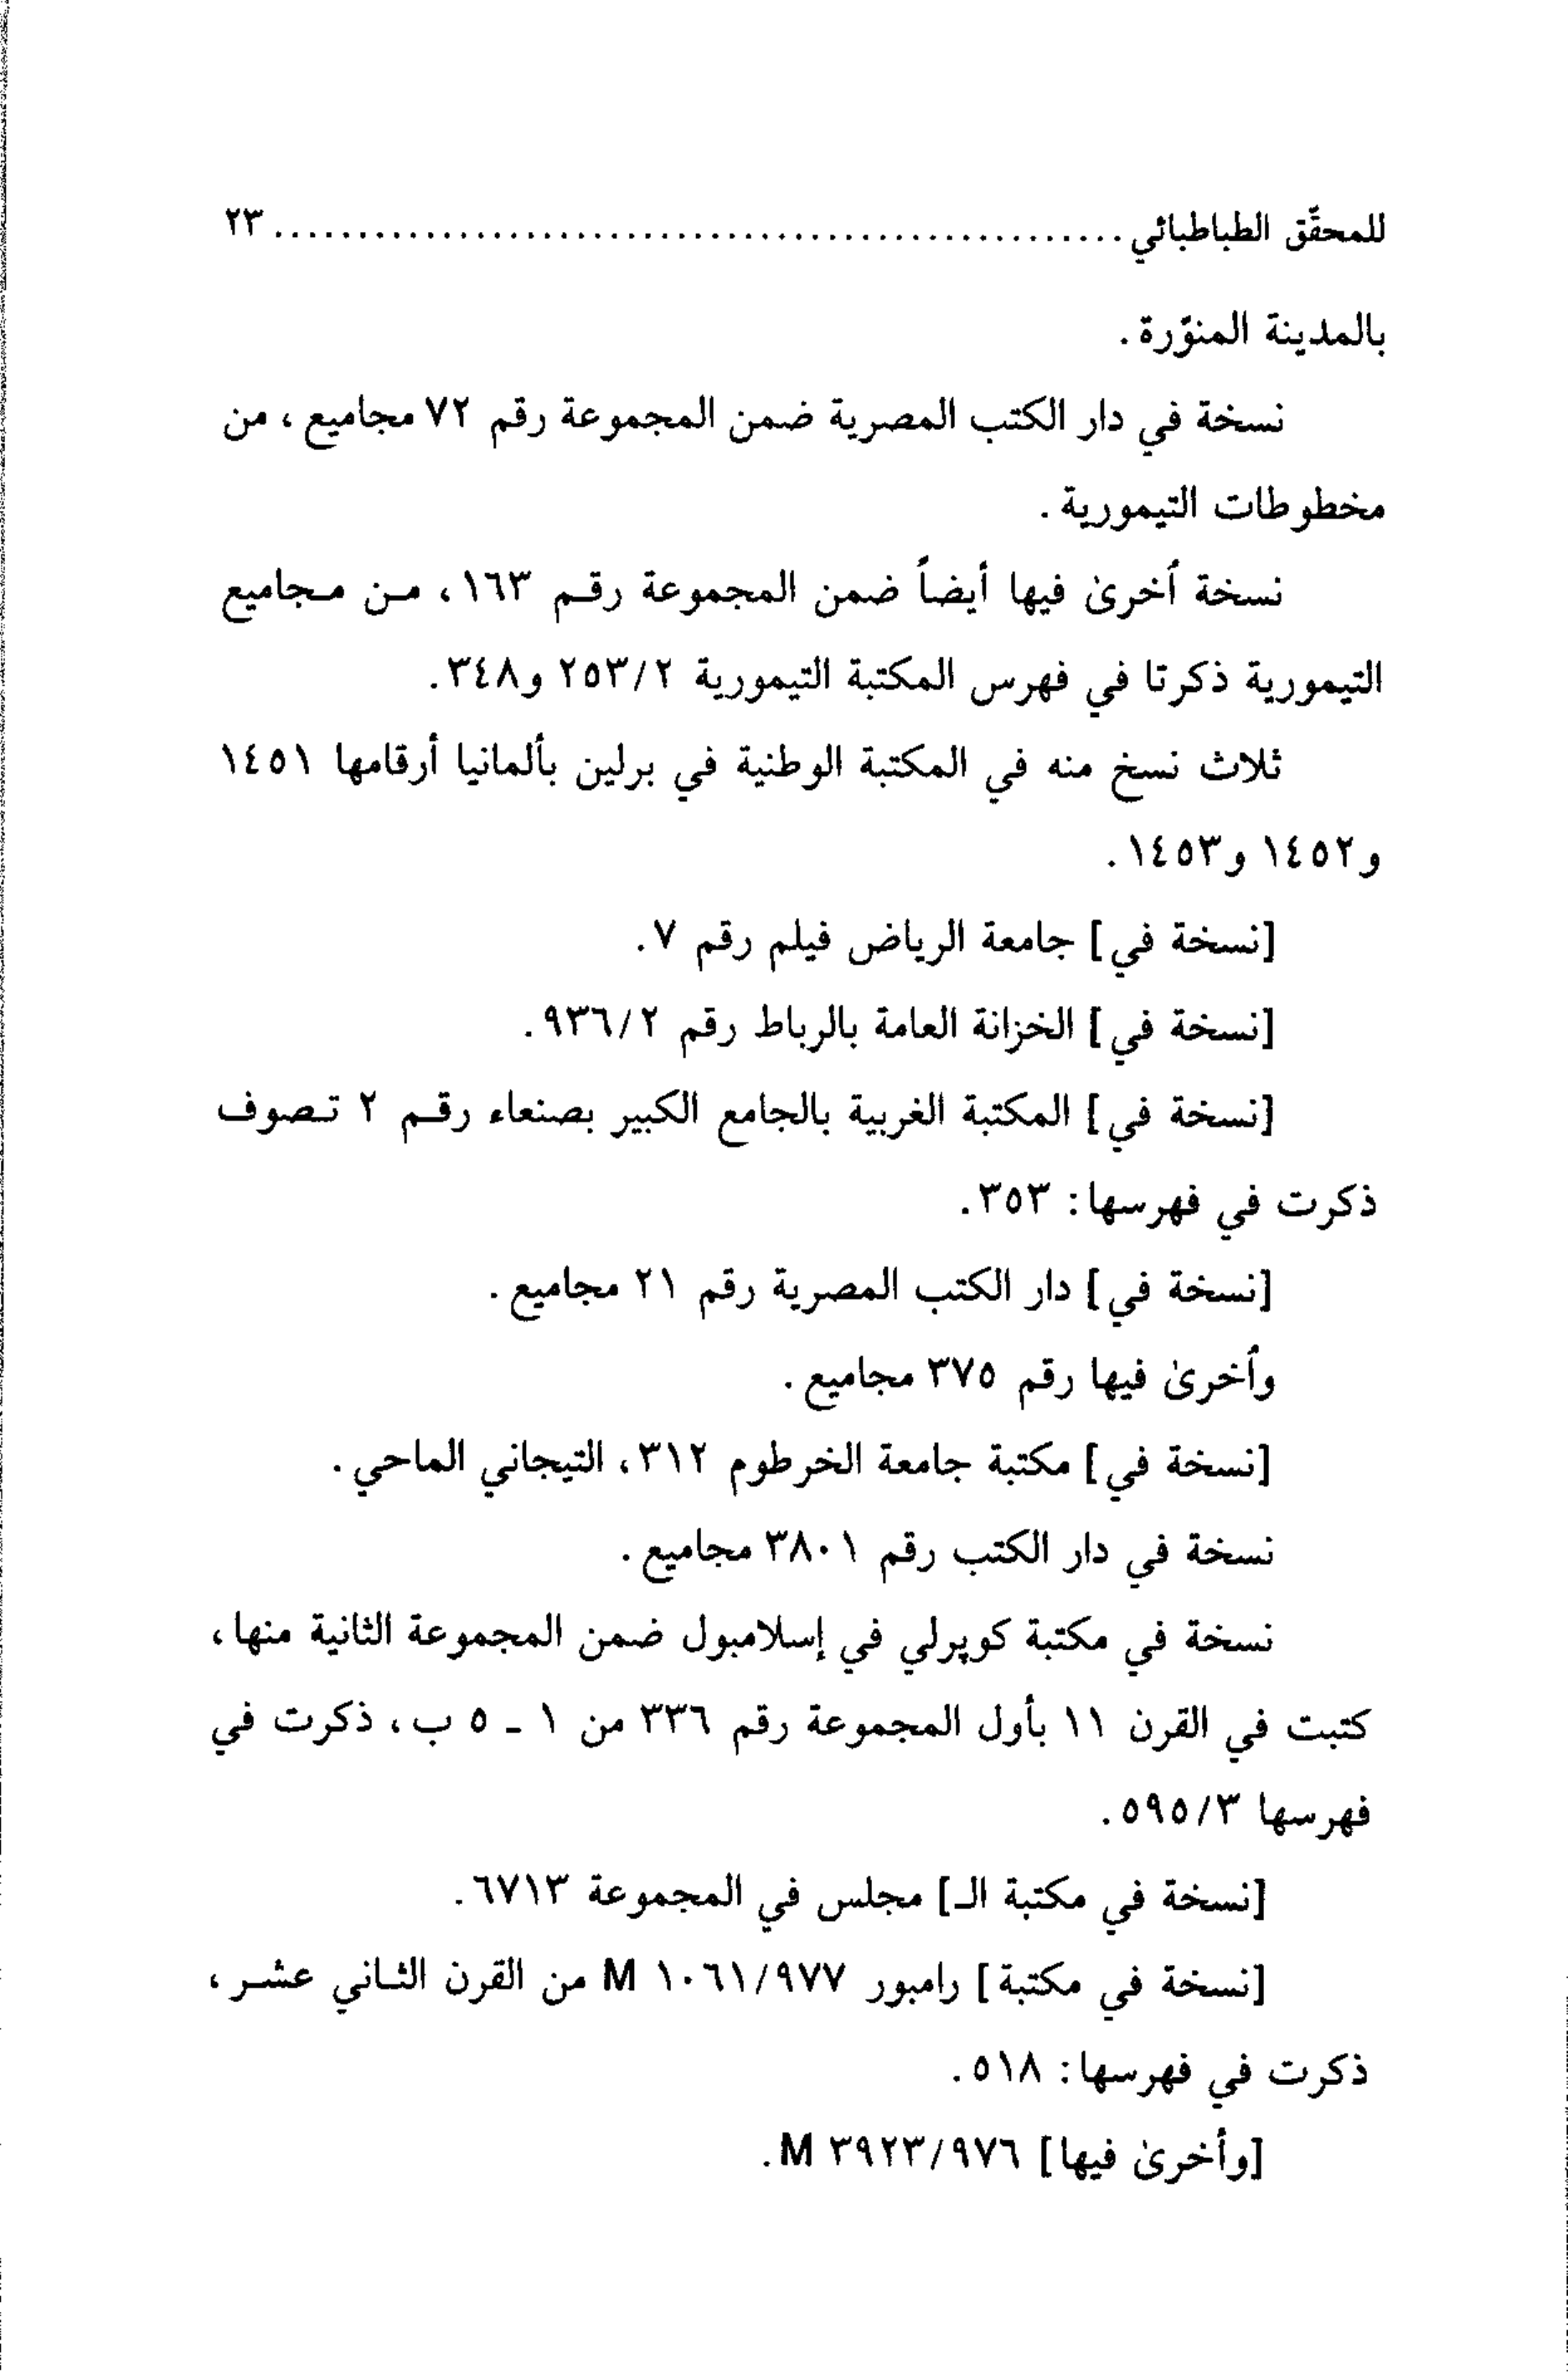 للمحقّق الطباطبائي ........................................................ ٢٣
بالمدينة المنوّرة .
نسخة في دار الكتب المصرية ضمن المجموعة رقم ٧٢ مجاميع ، من
مخطوطات التيمورية .
نسخة أخرىٰ فيها أيضاً ضمن المجموعة رقـم ١٦٣ ، مـن مـجاميع
التيمورية ذكرتا في فهرس المكتبة التيمورية ٢٥٣/٢ و٣٤٨.
ثلاث نسخ منه في المكتبة الوطنية في برلين بألمانيا أرقامها ١٤٥١
و١٤٥٢ و١٤٥٣ .
[نسخة في] جامعة الرياض فيلم رقم ٧.
[نسخة في] الخزانة العامة بالرباط رقم ٩٣٦/٢.
[نسخة في] المكتبة الغربية بالجامع الكبير بصنعاء رقـم ٢ تـصوف
ذكرت في فهرسها: ٣٥٣.
[نسخة في] دار الكتب المصرية رقم ٢١ مجاميع .
وأخرىٰ فيها رقم ٣٧٥ مجاميع .
[نسخة في] مكتبة جامعة الخرطوم ٣١٢، التيجاني الماحي .
نسخة في دار الكتب رقم ٣٨٠١ مجاميع .
نسخة في مكتبة كوپرلي في إسلامبول ضمن المجموعة الثانية منها ،
كتبت في القرن ١١ بأول المجموعة رقم ٣٣٦ من ١ ـ ٥ ب ، ذكرت في
فهرسها ٥٩٥/٣.
[نسخة في مكتبة الـ] مجلس في المجموعة ٦٧١٣.
[نسخة في مكتبة] رامبور ١٠٦١/٩٧٧ M من القرن الثـاني عشـر ،
ذكرت في فهرسها: ٥١٨.
[وأخرىٰ فيها] ٣٩٢٣/٩٧٦ M.